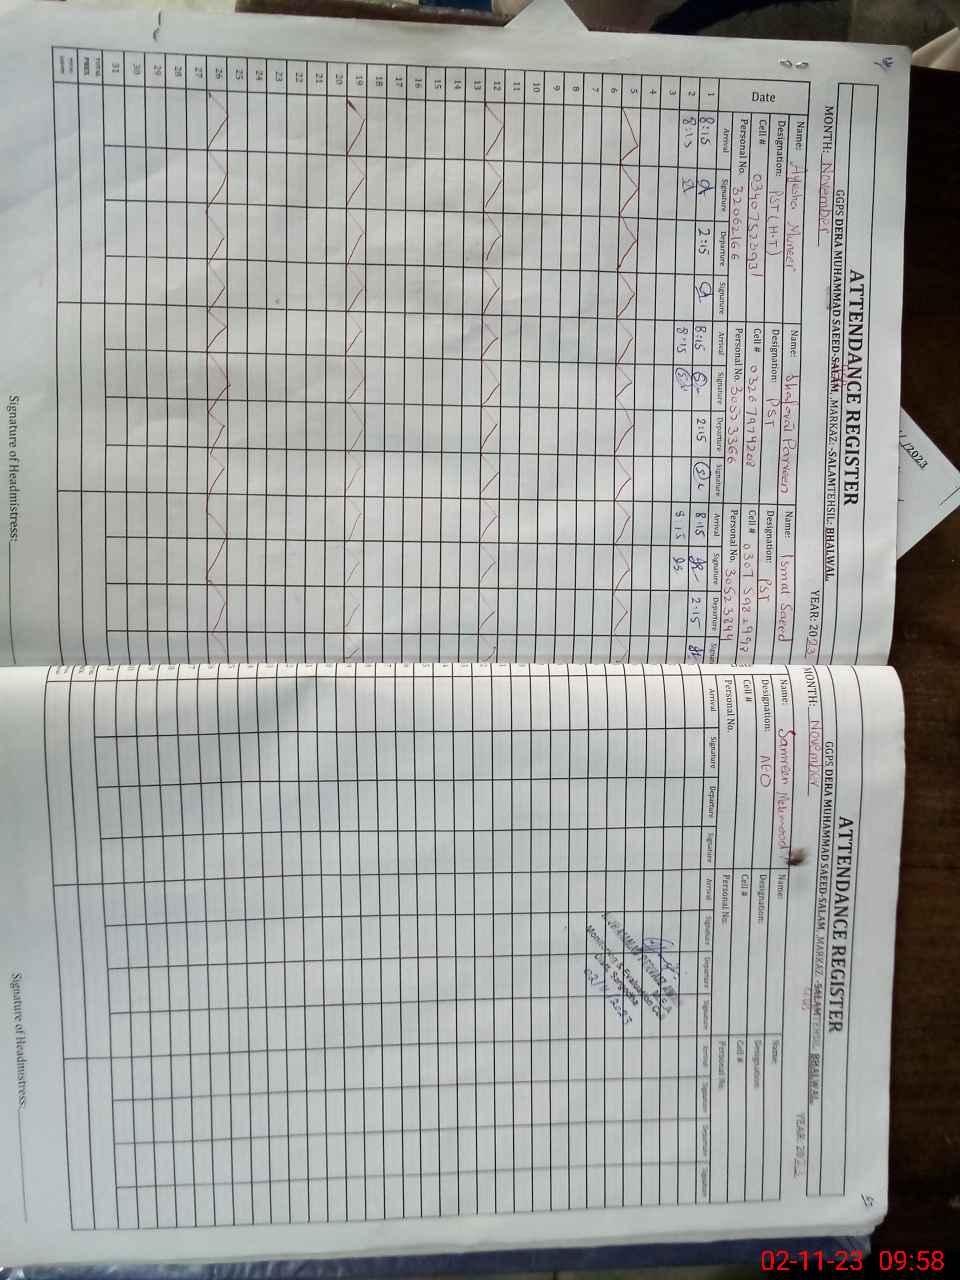 ATTENDANCE REGISTER
GGPS DERA MUHAMMAD SAEED-SALAM, MARKAZ:-SALAM TEHSIL: BHALWAL.
MONTH: November YEAR: 2023
Date
Name: Ayesha Muneer
Designation: PST (H.T)
Cell # 03407523931
Personal No. 32062166
Name: Parveen
Designation: PST
Cell # 03267974208
Personal No. 30523366
Name: Ismat Saeed
Designation: PST
Cell #
Personal No. 30523894
Arrival Signature Departure Signature Arrival Signature Departure Signature Arrival Signature Departure Signa
1 8:15 2:15 8:15 2:15 8:15 2:15
2 8:15 8:15 8:15
3
4
5
6
7
8
9
10
11
12
13
14
15
16
17
18
19
20
21
22
23
24
25
26
27
28
29
30
31
TOTAL PRES.
Signature of Headmistress:
ATTENDANCE REGISTER
GGPS DERA MUHAMMAD SAEED-SALAM, MARKAZ:-SALAM TEHSIL: BHALWAL.
MONTH: November YEAR: 2023
Name: Samreen Mehmood
Designation: AEO
Cell #
Personal No.
Name:
Designation:
Cell #
Personal No.
Name:
Designation:
Cell #
Personal No.
Arrival Signature Departure Signature Arrival Signature Departure Signature Arrival Signature Departure Signature
Monitoring & Evaluation
Distt. Sargodha
02/11/2023
Signature of Headmistress:
/2023
02-11-23 09:58